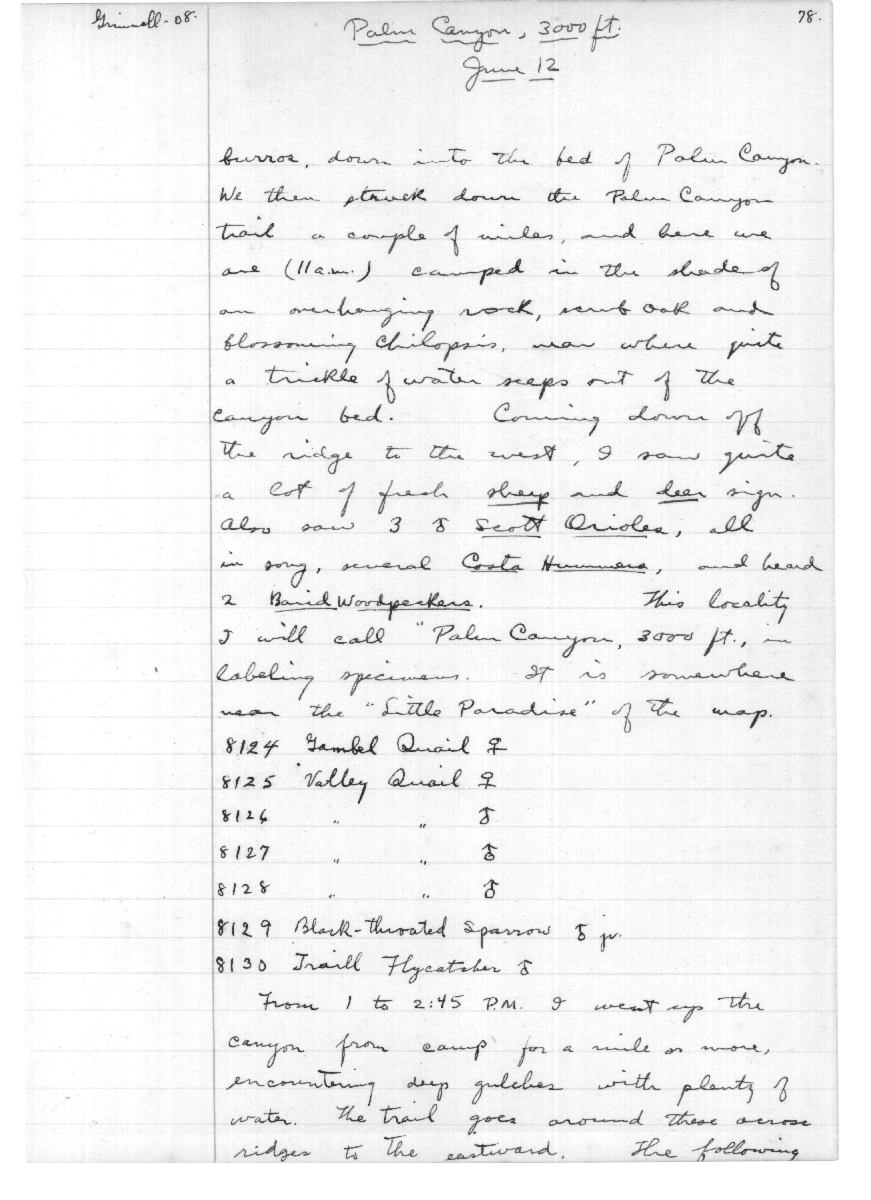 Grinnell-08.
78.
Palm Canyon, 3000 ft.
June 12
burros, down into the bed of Palm Canyon.
We then struck down the Palm Canyon
trail a couple of miles, and here we
are (11 a.m.) camped in the shade of
an overhanging rock, scrub oak and
blossoming Chilopsis, near where quite
a trickle of water seeps out of the
canyon bed. Coming down off
the ridge to the west, I saw quite
a lot of fresh sheep and deer sign.
Also saw 3 ♂ Scott Orioles, all
in song, several Costa Hummers, and heard
2 Baird Woodpeckers. This locality
I will call "Palm Canyon, 3000 ft., in
labeling specimens. It is somewhere
near the "Little Paradise" of the map.
8124 Gambel Quail ♀
8125 Valley Quail ♀
8126 " " ♂
8127 " " ♂
8128 " " ♂
8129 Black-throated Sparrow ♂ jv.
8130 Traill Flycatcher ♂
From 1 to 2:45 P.M. I went up the
canyon from camp for a mile or more,
encountering deep gulches with plenty of
water. The trail goes around these across
ridges to the eastward. The following